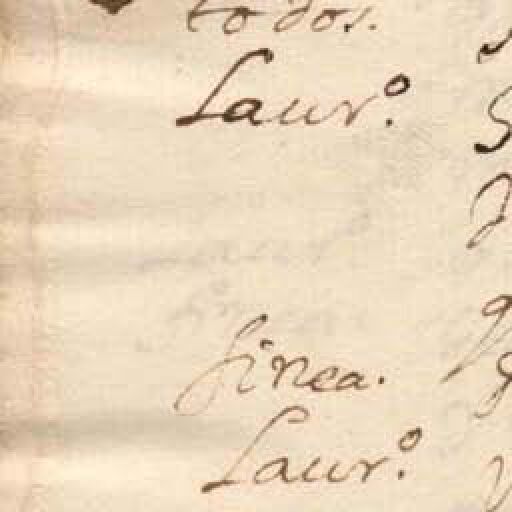 todos.
Laur.º
finea.
Laur.º